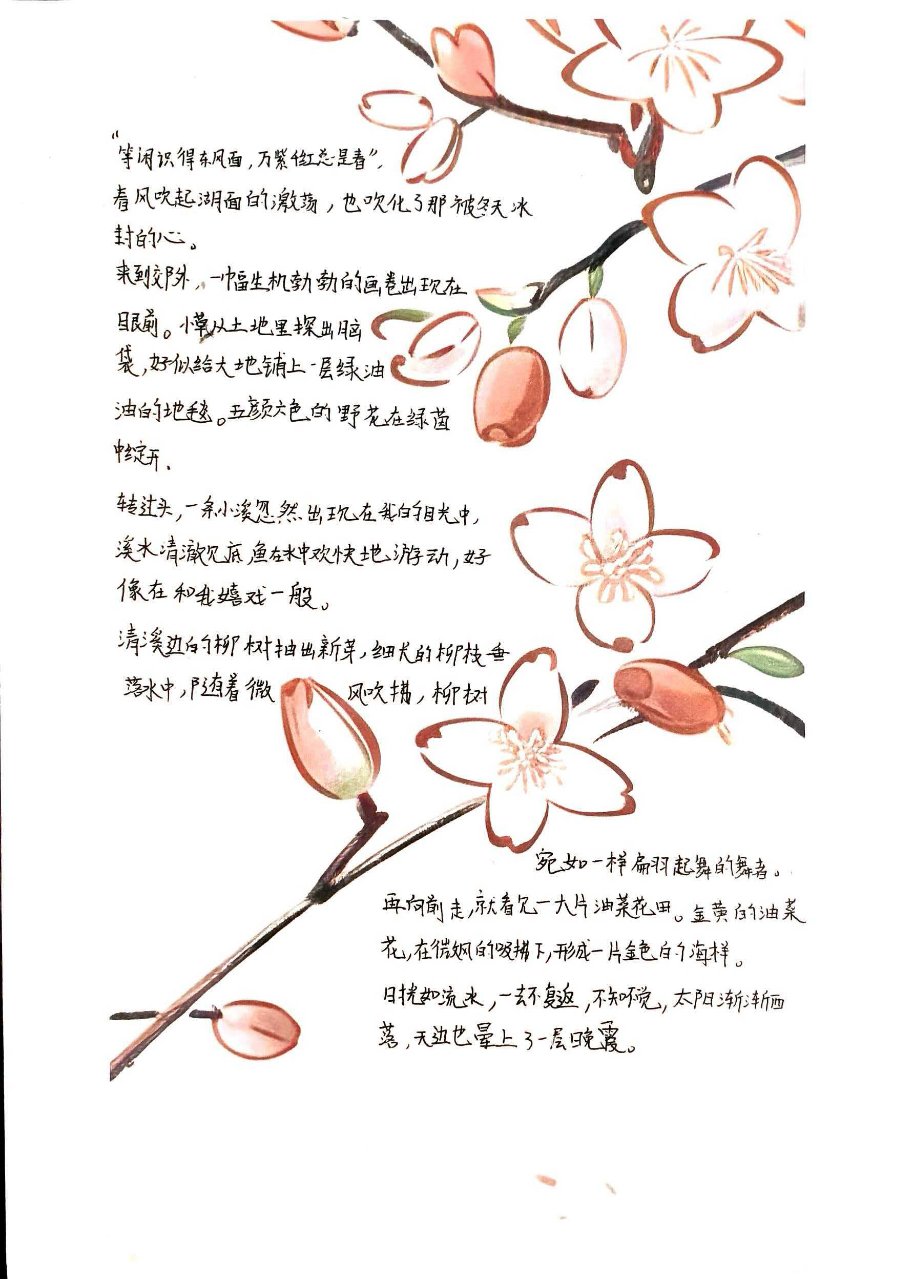 “等闲识得东风面，万紫千红总是春”，
春风吹起湖面的激荡，也吹化了那被冬天冰
封的心。
来到郊外，一幅生机勃勃的画卷出现在
眼前。小草从土地里探出脑
袋，好似给大地铺上一层绿油
油的地毯。五颜六色的野花在绿茵
中绽开．
转过头，一条小溪忽然出现在我的目光中，
溪水清澈见底，鱼在水中欢快地游动，好
像在和我嬉戏一般。
清溪边的柳树抽出新芽，细长的柳枝垂
落水中，随着微风吹拂，柳树
宛如一样扁羽起舞的舞者。
再向前走，就看见一大片油菜花田。金黄的油菜
花，在微风的吸拂下，形成一片金色的海样。
日光如流水，一去不复返，不知不觉，太阳渐渐西
落，天边也晕上了一层晚霞。